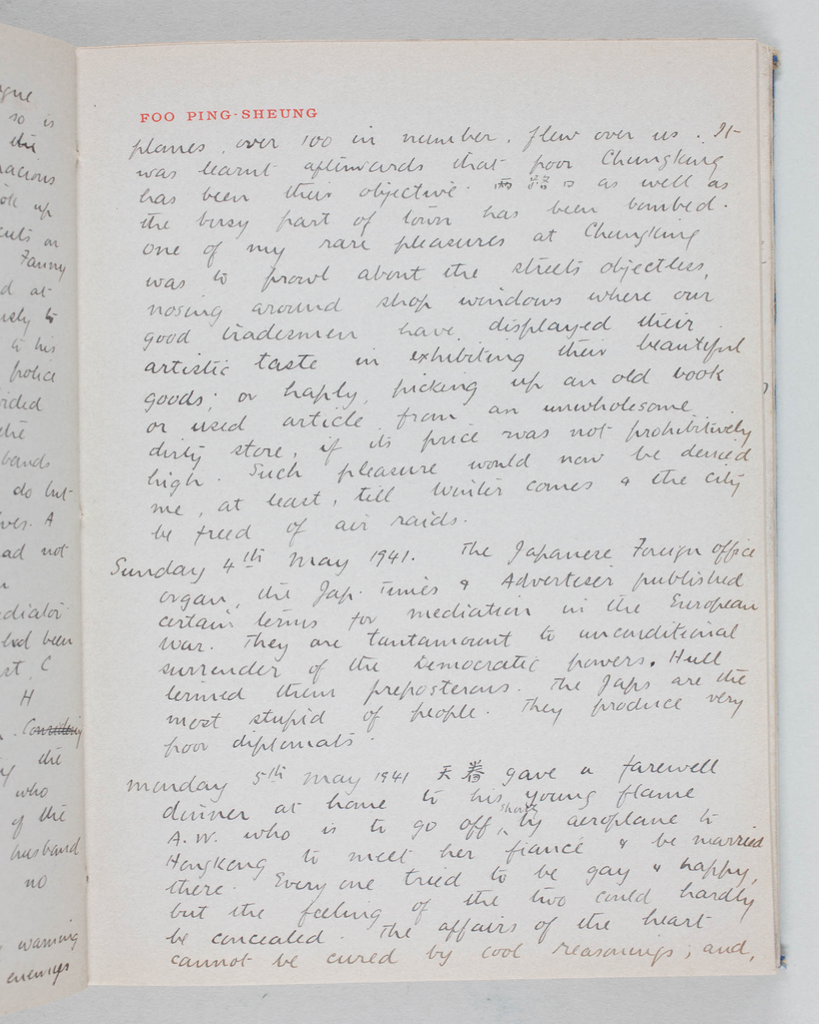 gue
so is
the
nacious
ok up
cuts on
Fanny
d at
to
to his
police
ided
the
bands
do but
ves. A
ad not
ediator
had been
rt, C
H
Considering
the
who
of the
husband
no
warning
enemys
FOO PING-SHEUNG
planes, over 100 in number, flew over us. It
was learnt afterwards that poor Chungking
has been their objective. is as well as
the busy part of town has been bombed.
One of my rare pleasures at Chungking
was to prowl about the streets objectless,
nosing around shop windows where our
good tradesmen have displayed their
artistic taste in exhibiting their beautiful
goods; or haply, picking up an old book
or used article from an unwholesome
dirty store, if its price was not prohibitively
high. Such pleasure would now be denied
me, at least, till winter comes & the city
be freed of air raids.
Sunday 4th May 1941. The Japanese Foreign office
organ, the Jap. Times & Advertiser published
certain terms for mediation in the European
War. They are tantamount to unconditional
surrender of the Democratic powers. Hull
termed them preposterous. The Japs are the
most stupid of people. They produce very
poor diplomats.
Monday 5th May 1941 天眷 gave a farewell
dinner at home to his young flame
A.W. who is to go off shortly by aeroplane to
Hongkong to meet her fiancé & be married
there. Every one tried to be gay & happy,
but the feeling of the two could hardly
be concealed. The affairs of the heart
cannot be cured by cool reasonings, and,